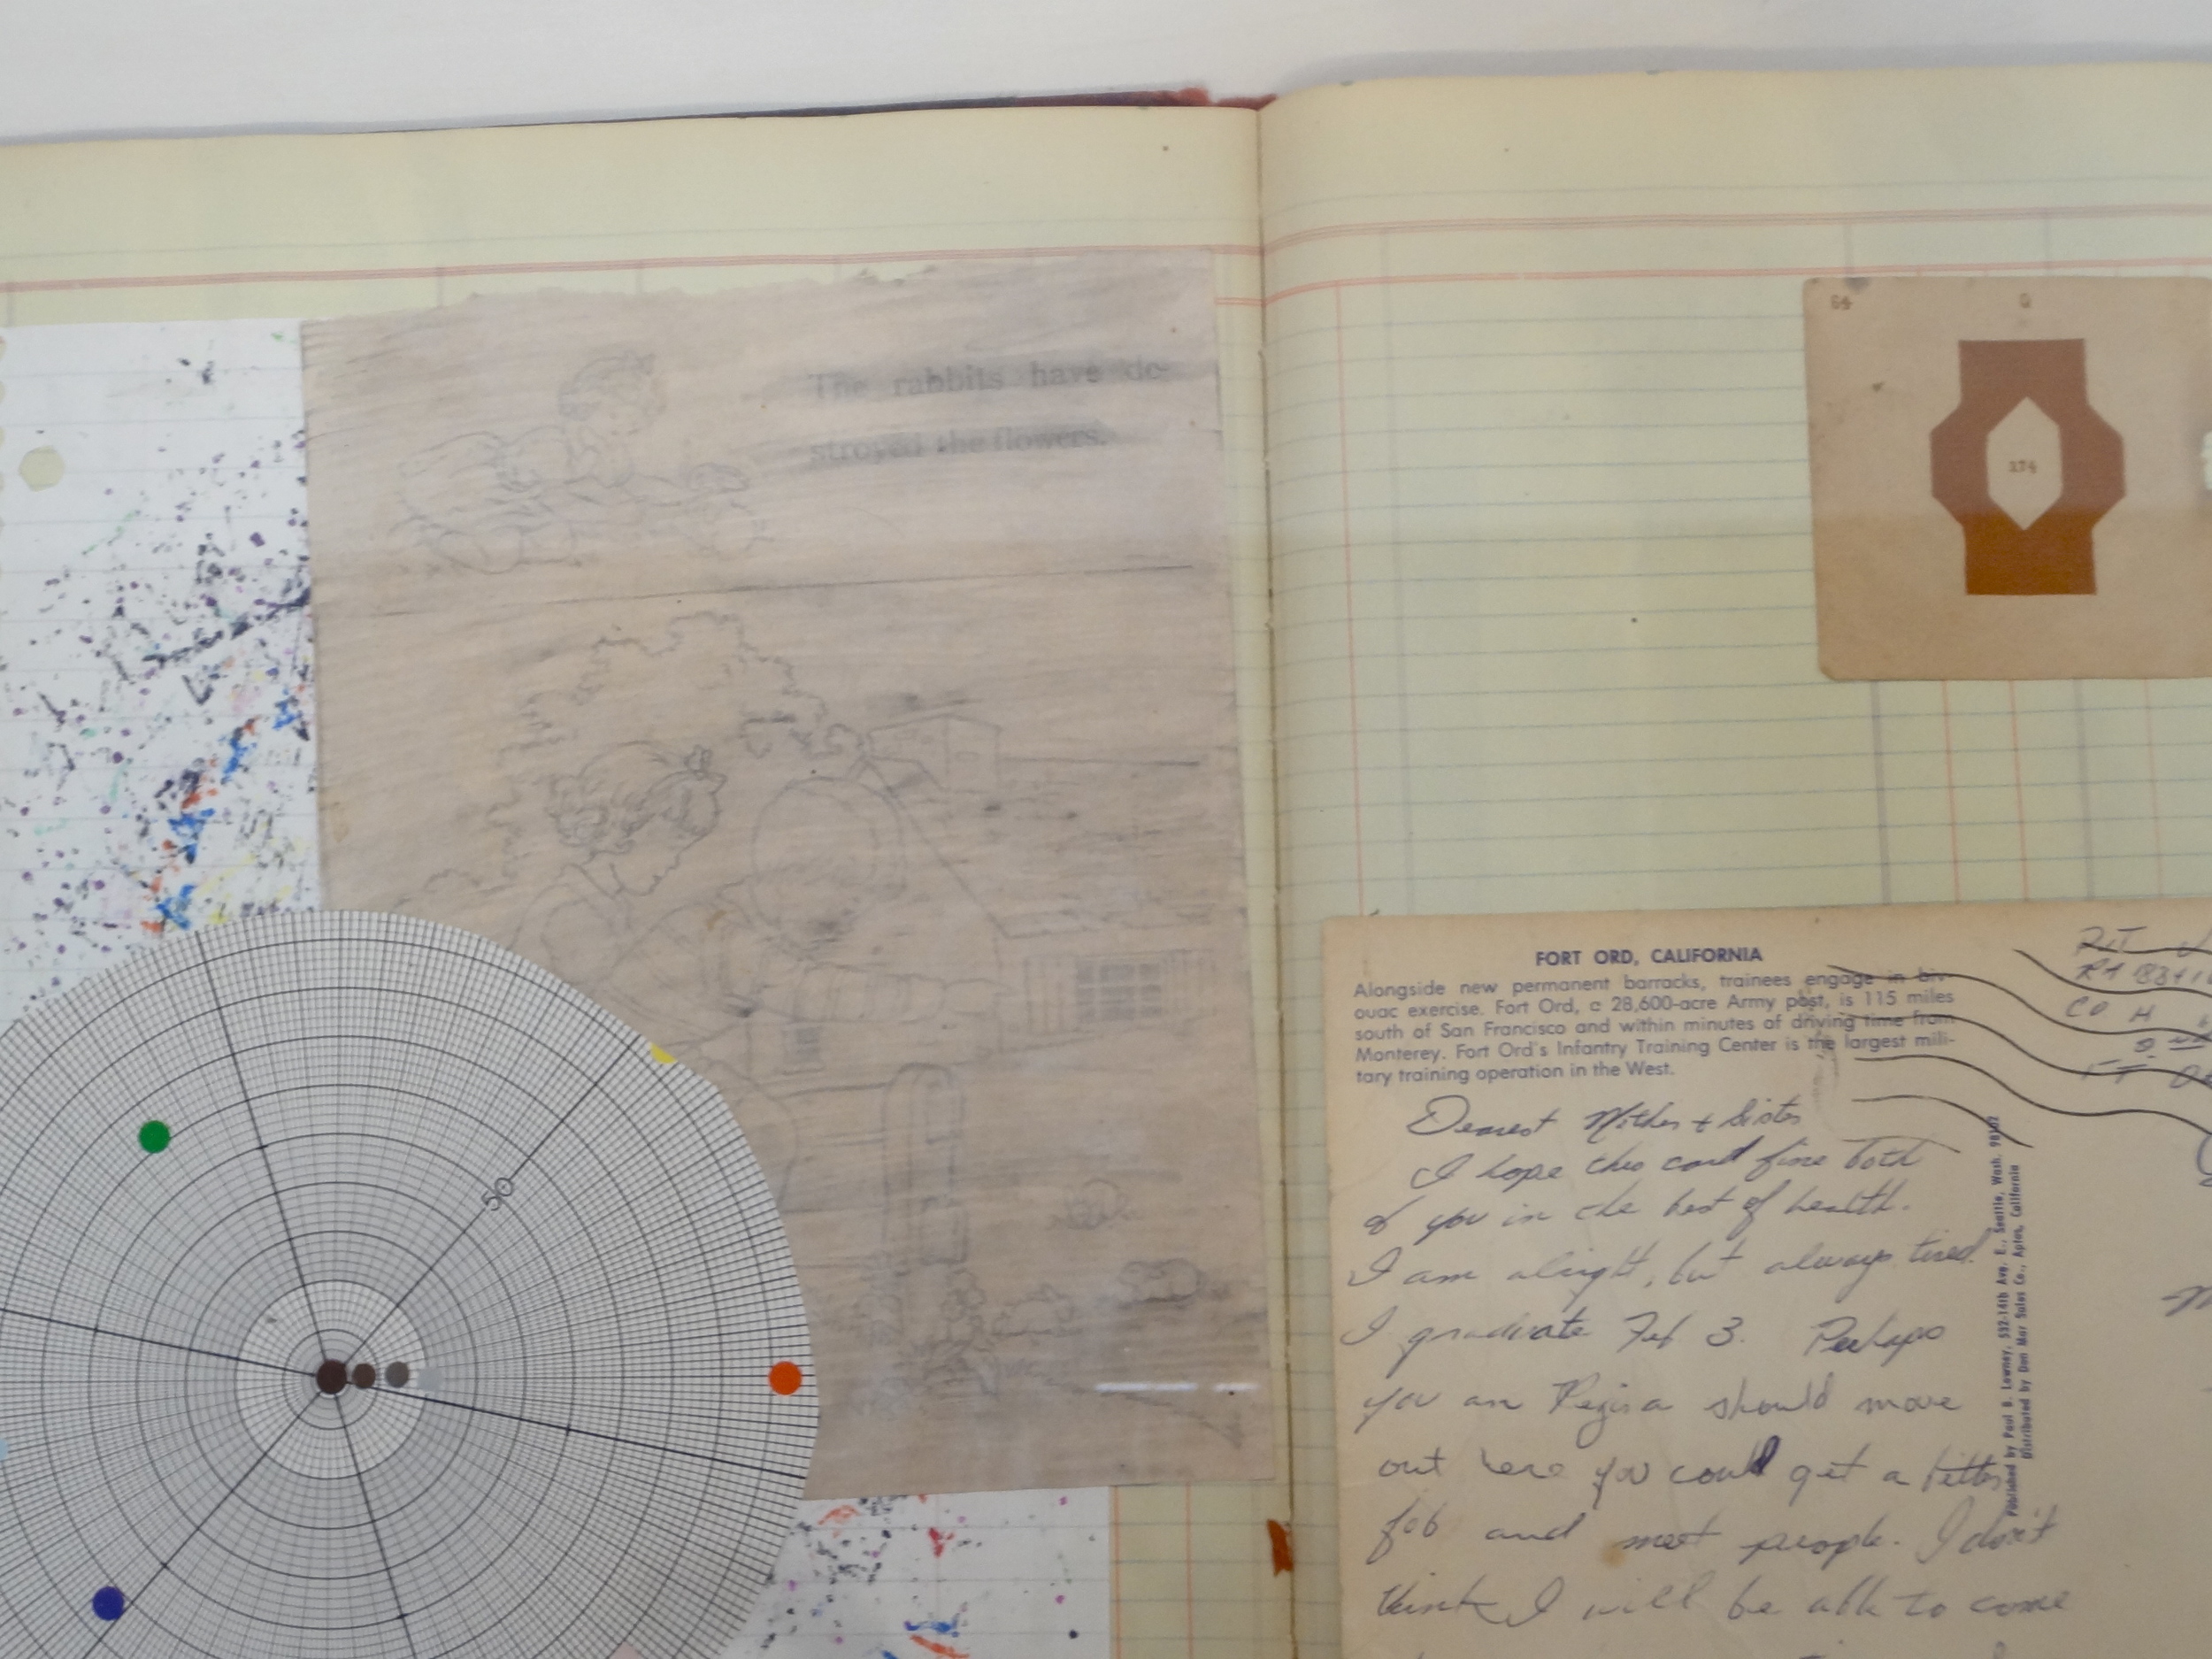 The rabbits have de-
stroyed the flowers.
50
64
Q
174
FORT ORD, CALIFORNIA
Alongside new permanent barracks, trainees engage in biv-
ouac exercise. Fort Ord, a 28,600-acre Army post, is 115 miles
south of San Francisco and within minutes of driving time from
Monterey. Fort Ord's Infantry Training Center is the largest mili-
tary training operation in the West.
Dearest Mother + Sister
I hope this card fine both
of you in the best of health.
I am alright, but always tired.
I graduate Feb 3. Perhaps
you an Regina should move
out here you could get a better
job and meet people. I don't
think I will be able to come
Published by Paul B. Lowney, 592-14th Ave. E., Seattle, Wash. 98102
Distributed by Don Mar Sales Co., Aptos, California
CO H